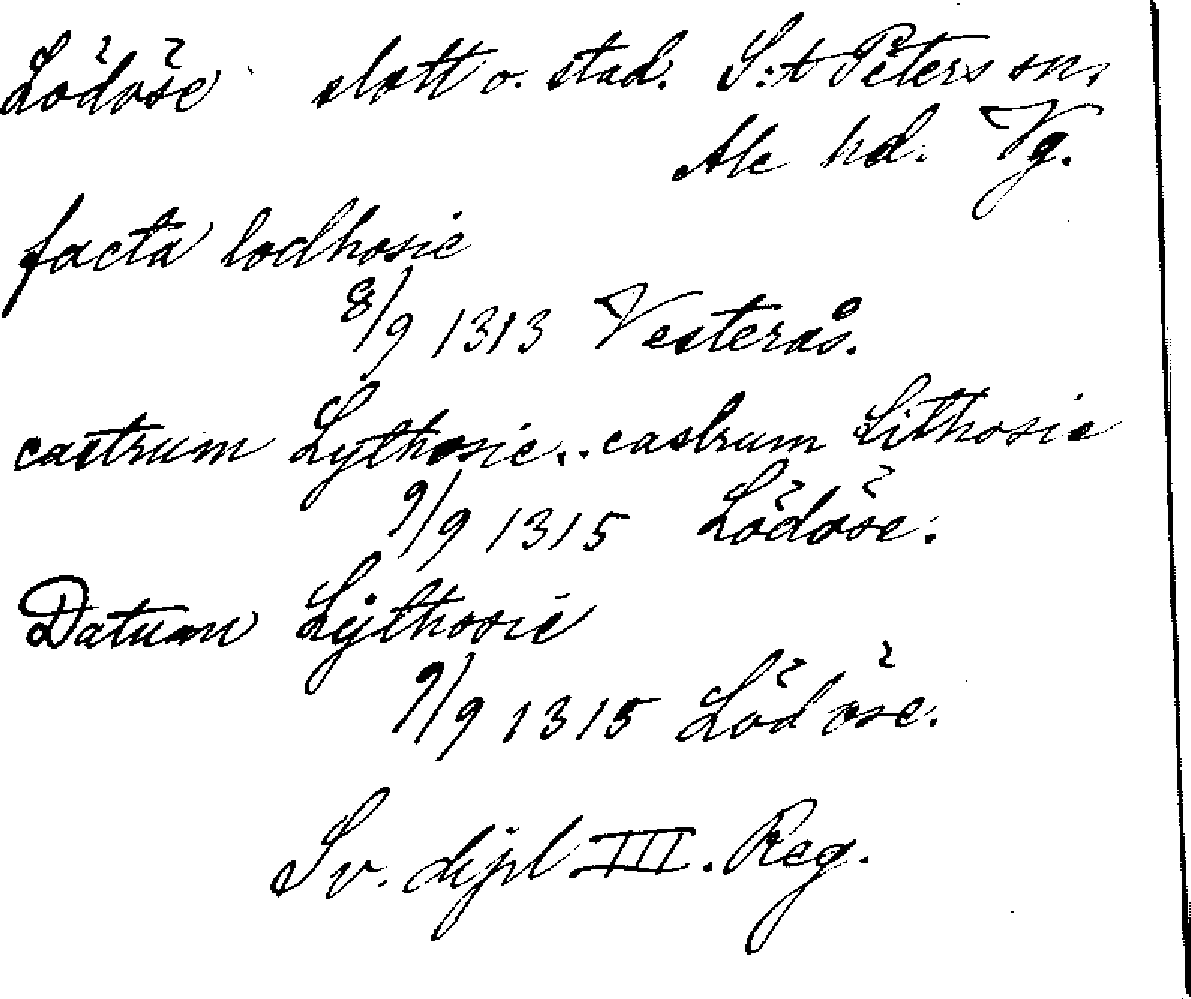 Lödöse slott o. stad. S:t Peters sn,
Ale hd. Vg.
facta lodhosie
8/9 1313 Vesterås.
castrum Lythosie.. castrum Lithosie
9/9 1315 Lödöse.
Datum Lÿthosie
9/9 1315 Lödöse.
Sv. dipl III. Reg.